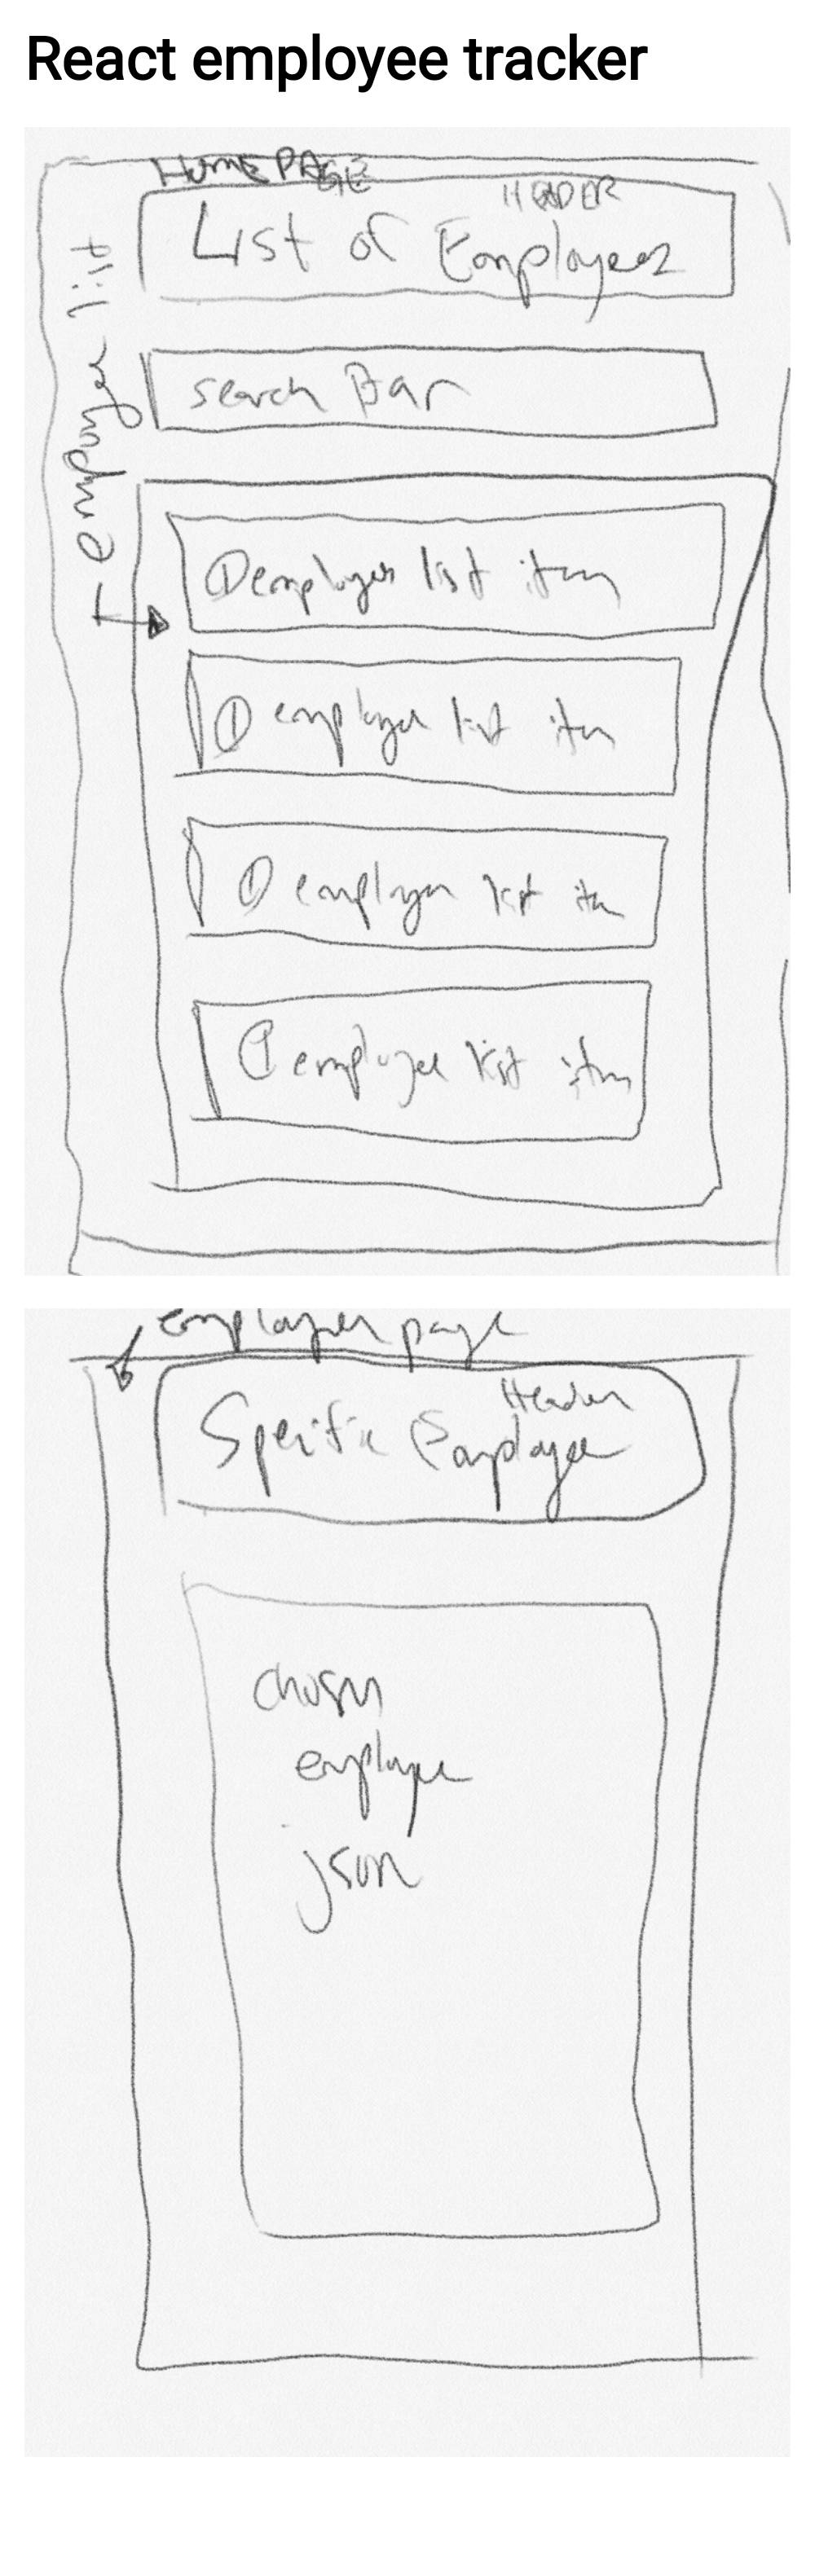 React employee tracker
HOMEPAGE
HEADER
List of Employees
employee list
search Bar
① employee list item
① employee list item
① employee list item
① employee list item
employee page
Header
Specific Employee
chosen
employee
json